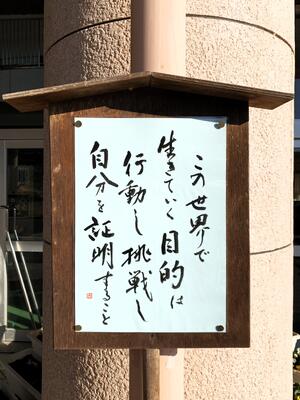 この世界で
生きていく目的は
行動し挑戦し
自分を証明すること